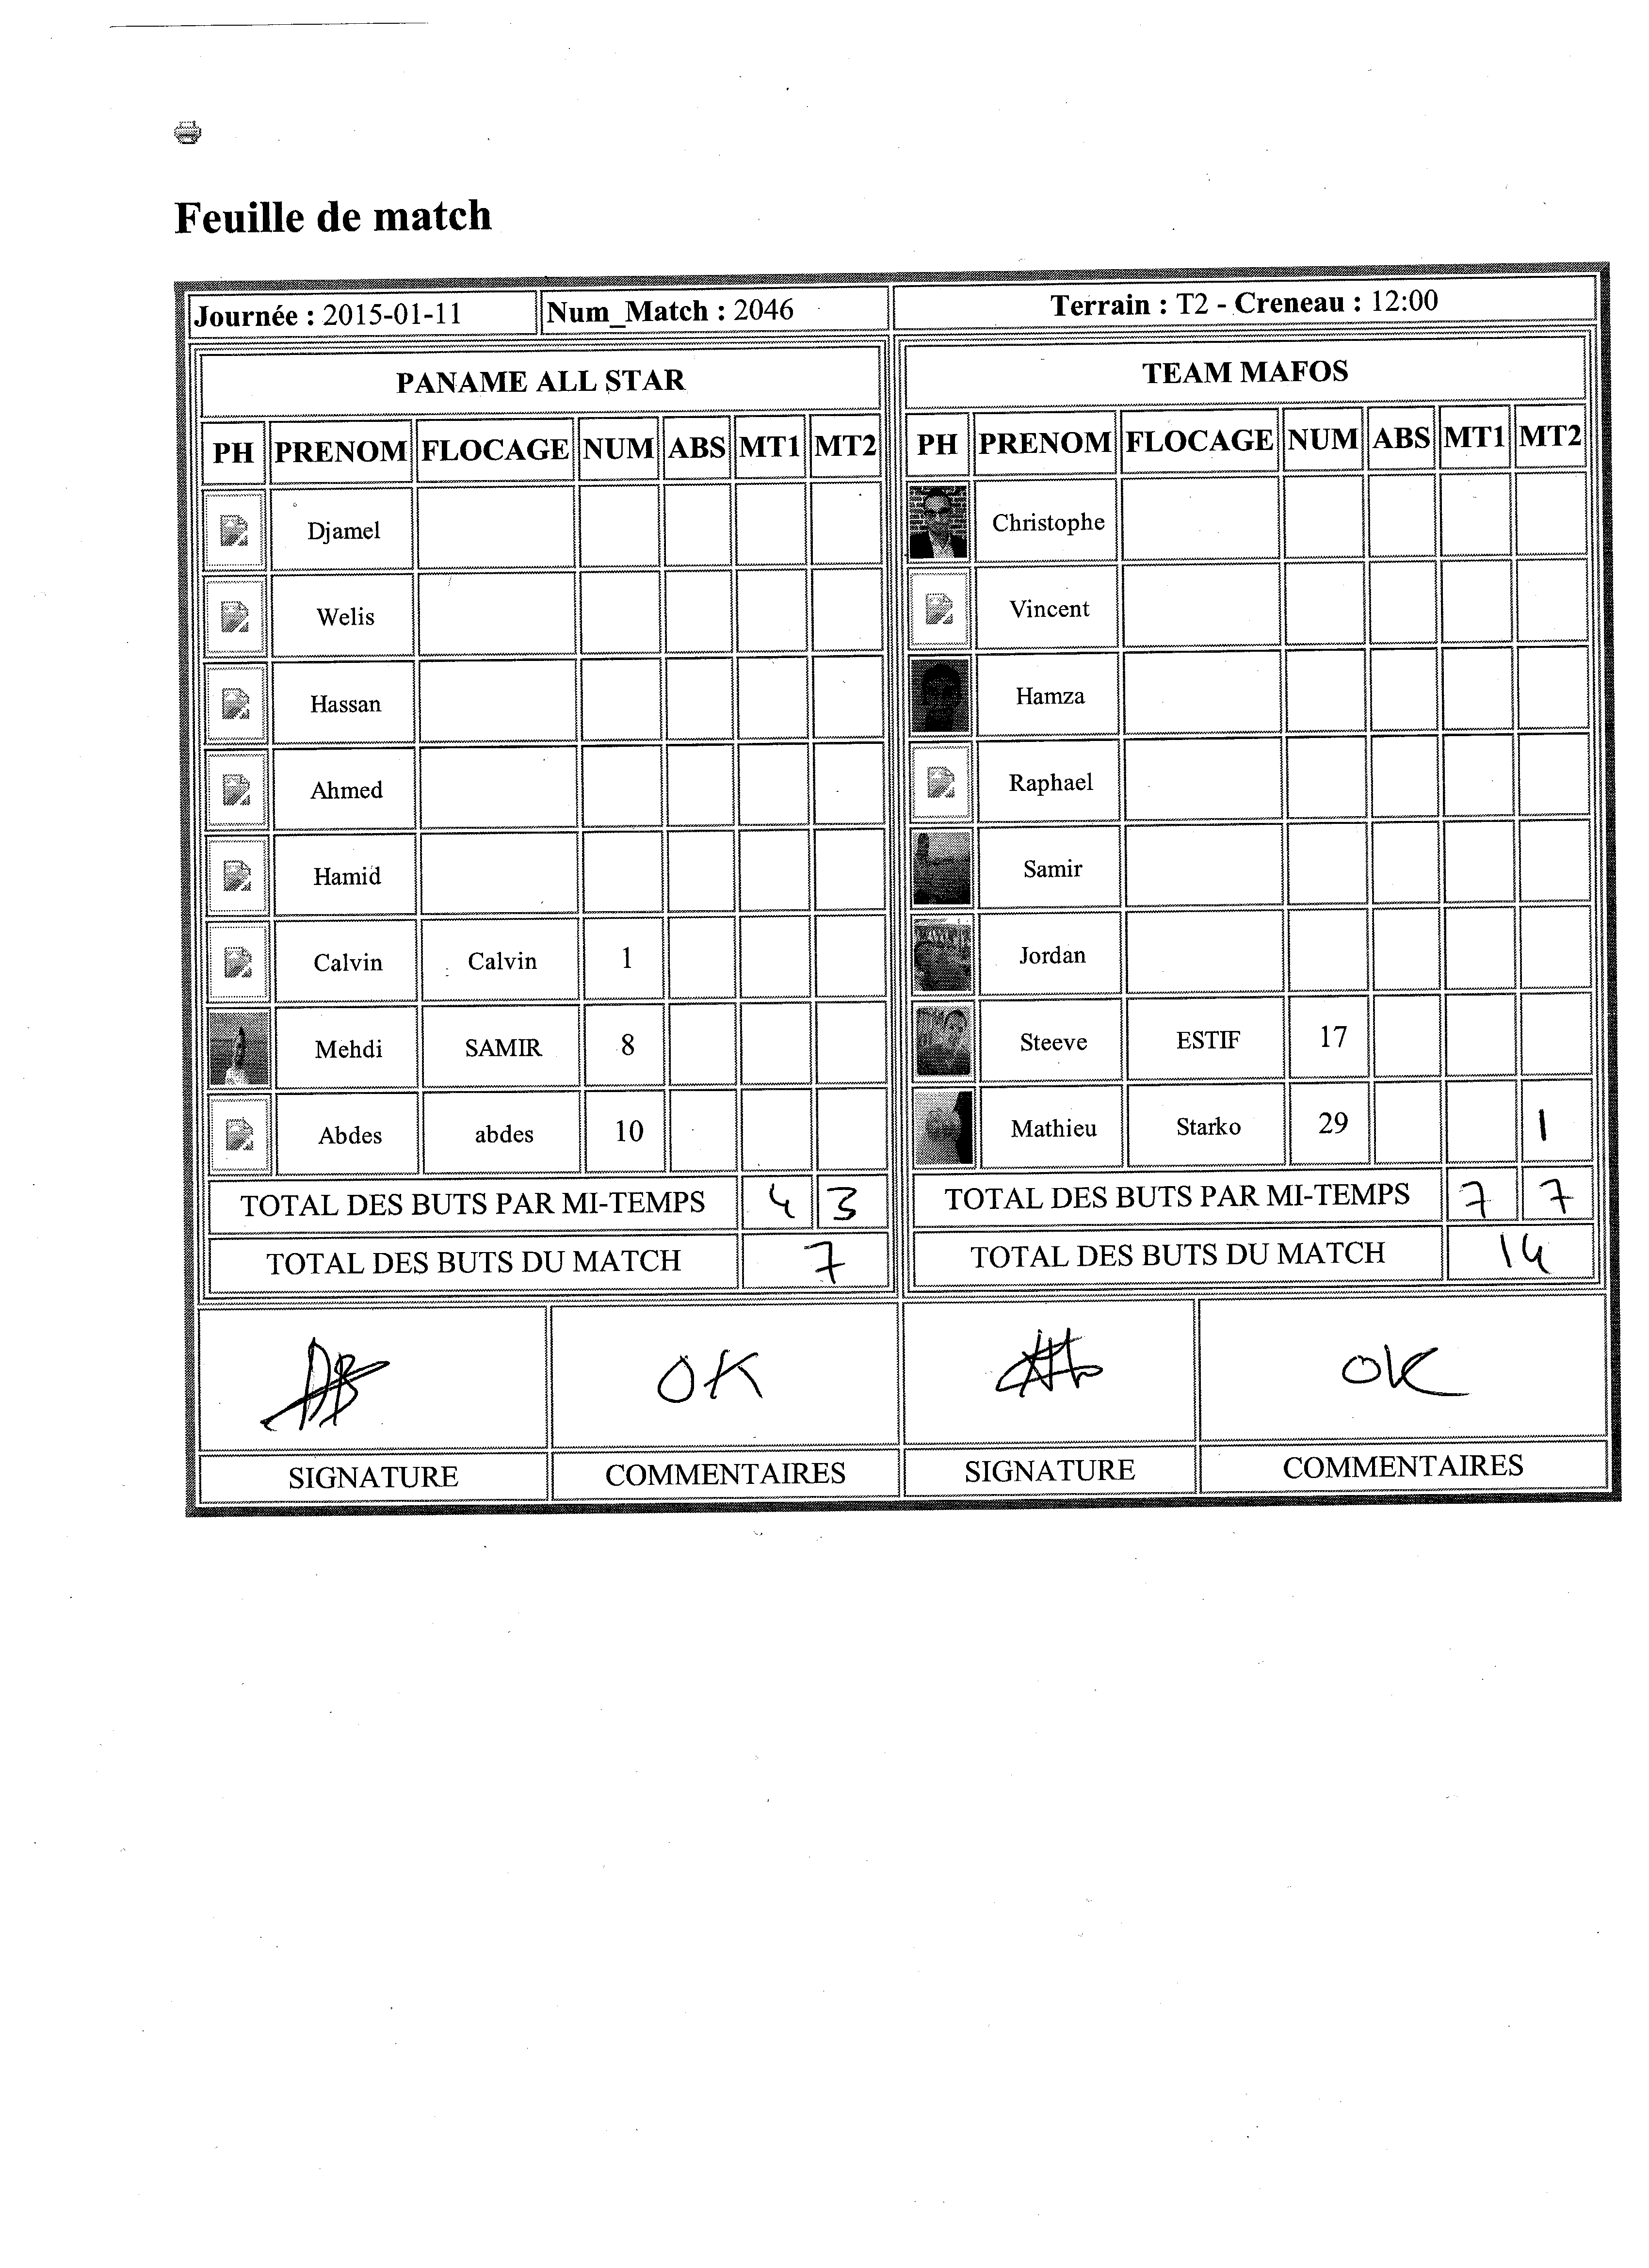 Feuille de match
Journée : 2015-01-11 Num_Match : 2046 Terrain : T2 - Creneau : 12:00
PANAME ALL STAR
PH PRENOM FLOCAGE NUM ABS MT1 MT2
Djamel
Welis
Hassan
Ahmed
Hamid
Calvin Calvin 1
Mehdi SAMIR 8
Abdes abdes 10
TOTAL DES BUTS PAR MI-TEMPS 4 3
TOTAL DES BUTS DU MATCH 7
TEAM MAFOS
PH PRENOM FLOCAGE NUM ABS MT1 MT2
Christophe
Vincent
Hamza
Raphael
Samir
Jordan
Steeve ESTIF 17
Mathieu Starko 29 1
TOTAL DES BUTS PAR MI-TEMPS 7 7
TOTAL DES BUTS DU MATCH 14
OK OK
SIGNATURE COMMENTAIRES SIGNATURE COMMENTAIRES